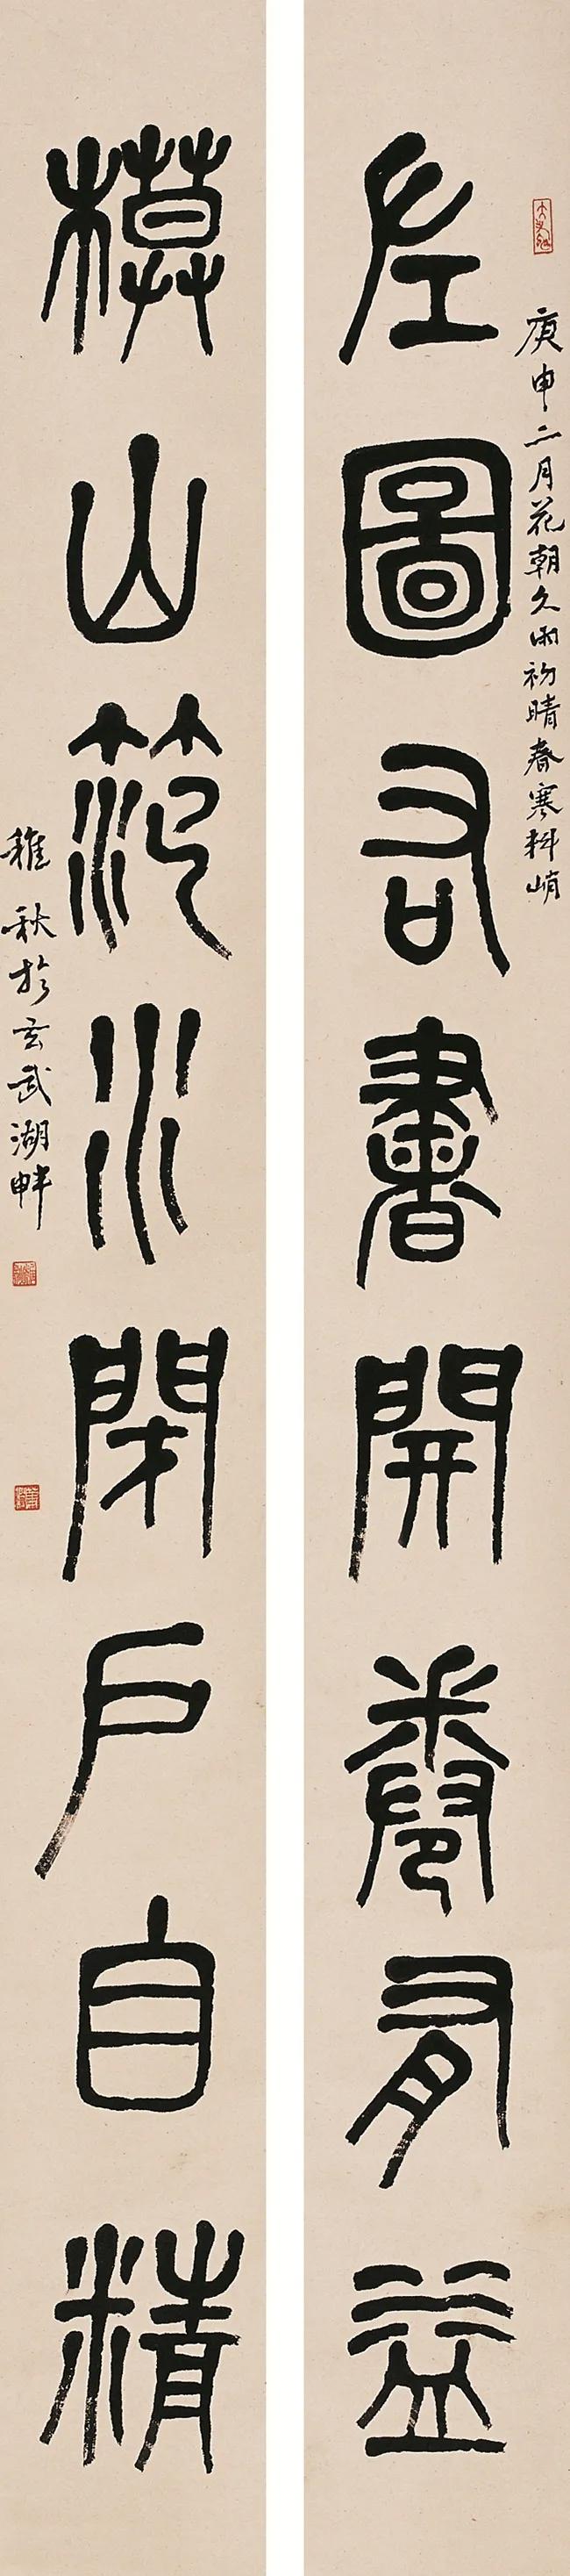 庚申二月花朝久雨初晴春寒料峭
左圖右書開卷有益
模山範水閉戶自精
稚秋於玄武湖畔